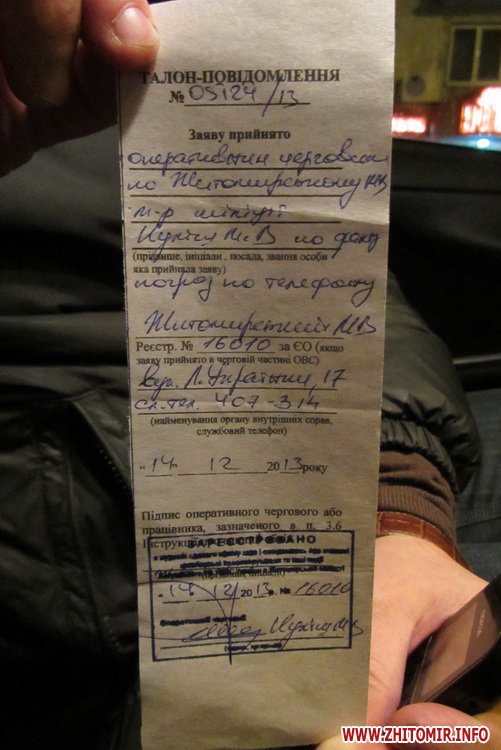 ТАЛОН-ПОВІДОМЛЕННЯ
№ 05124/13
Заяву прийнято
оперативним черговим
по Житомирському МВ
м-р міліції
по факту
(прізвище, ініціали, посада, звання особи
яка прийняла заяву)
погроз по телефону
Житомирський МВ
Реєстр. № 16010 за ЄО (якщо
заяву прийнято в черговій частині ОВС)
вул. Л. Українки, 17
сл. тел. 407-314
(найменування органу внутрішніх справ,
службовий телефон)
"14" 12 2013 року
Підпис оперативного чергового або
працівника, зазначеного в п. 3.6
Інструкції
ЗАРЕЄСТРОВАНО
14 12 2013 р. № 16010
Оперативний черговий
WWW.ZHITOMIR.INFO